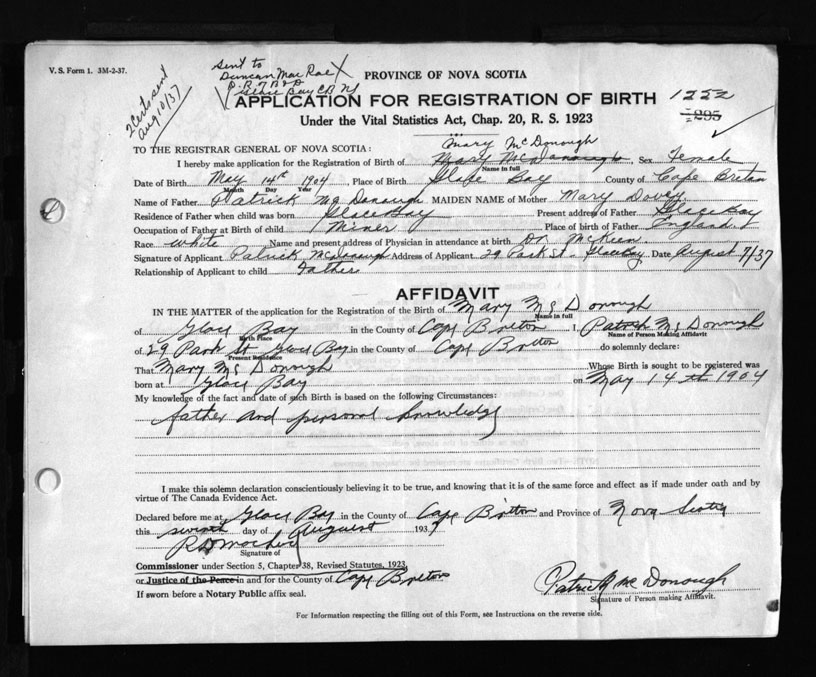 V. S. Form 1. 3M-2-37.
2 Certs sent
Aug 10/37
Sent to
Duncan MacRae X
D. R. of B & D
Glace Bay CB NS
PROVINCE OF NOVA SCOTIA
APPLICATION FOR REGISTRATION OF BIRTH 1222
Under the Vital Statistics Act, Chap. 20, R. S. 1923 295
TO THE REGISTRAR GENERAL OF NOVA SCOTIA: Mary McDonough
I hereby make application for the Registration of Birth of Mary McDonough, Sex Female
Name in full
Date of Birth May 14th 1904, Place of Birth Glace Bay County of Cape Breton
Month Day Year
Name of Father Patrick McDonough MAIDEN NAME of Mother Mary Dovey
Residence of Father when child was born Glace Bay Present address of Father Glace Bay
Occupation of Father at Birth of child Miner Place of birth of Father England
Race white Name and present address of Physician in attendance at birth Dr. McKeen
Signature of Applicant Patrick McDonough Address of Applicant 29 Park St. Glace Bay Date August 7/37
Relationship of Applicant to child Father
AFFIDAVIT
IN THE MATTER of the application for Registration of the Birth of Mary McDonough
Name in full
of Glace Bay in the County of Cape Breton I, Patrick McDonough
Birth Place Name of Person Making Affidavit
of 29 Park St Glace Bay in the County of Cape Breton do solemnly declare:
Present Residence
That Mary McDonough Whose Birth is sought to be registered was
born at Glace Bay on May 14th 1904
My knowledge of the fact and date of such Birth is based on the following Circumstances:
father and personal knowledge
I make this solemn declaration conscientiously believing it to be true, and knowing that it is of the same force and effect as if made under oath and by
virtue of The Canada Evidence Act.
Declared before me at Glace Bay in the County of Cape Breton and Province of Nova Scotia
this seventh day of August 1937
Signature of
Commissioner under Section 5, Chapter 38, Revised Statutes, 1923
or Justice of the Peace in and for the County of Cape Breton
If sworn before a Notary Public affix seal.
Patrick McDonough
Signature of Person making Affidavit.
For Information respecting the filling out of this Form, see Instructions on the reverse side.